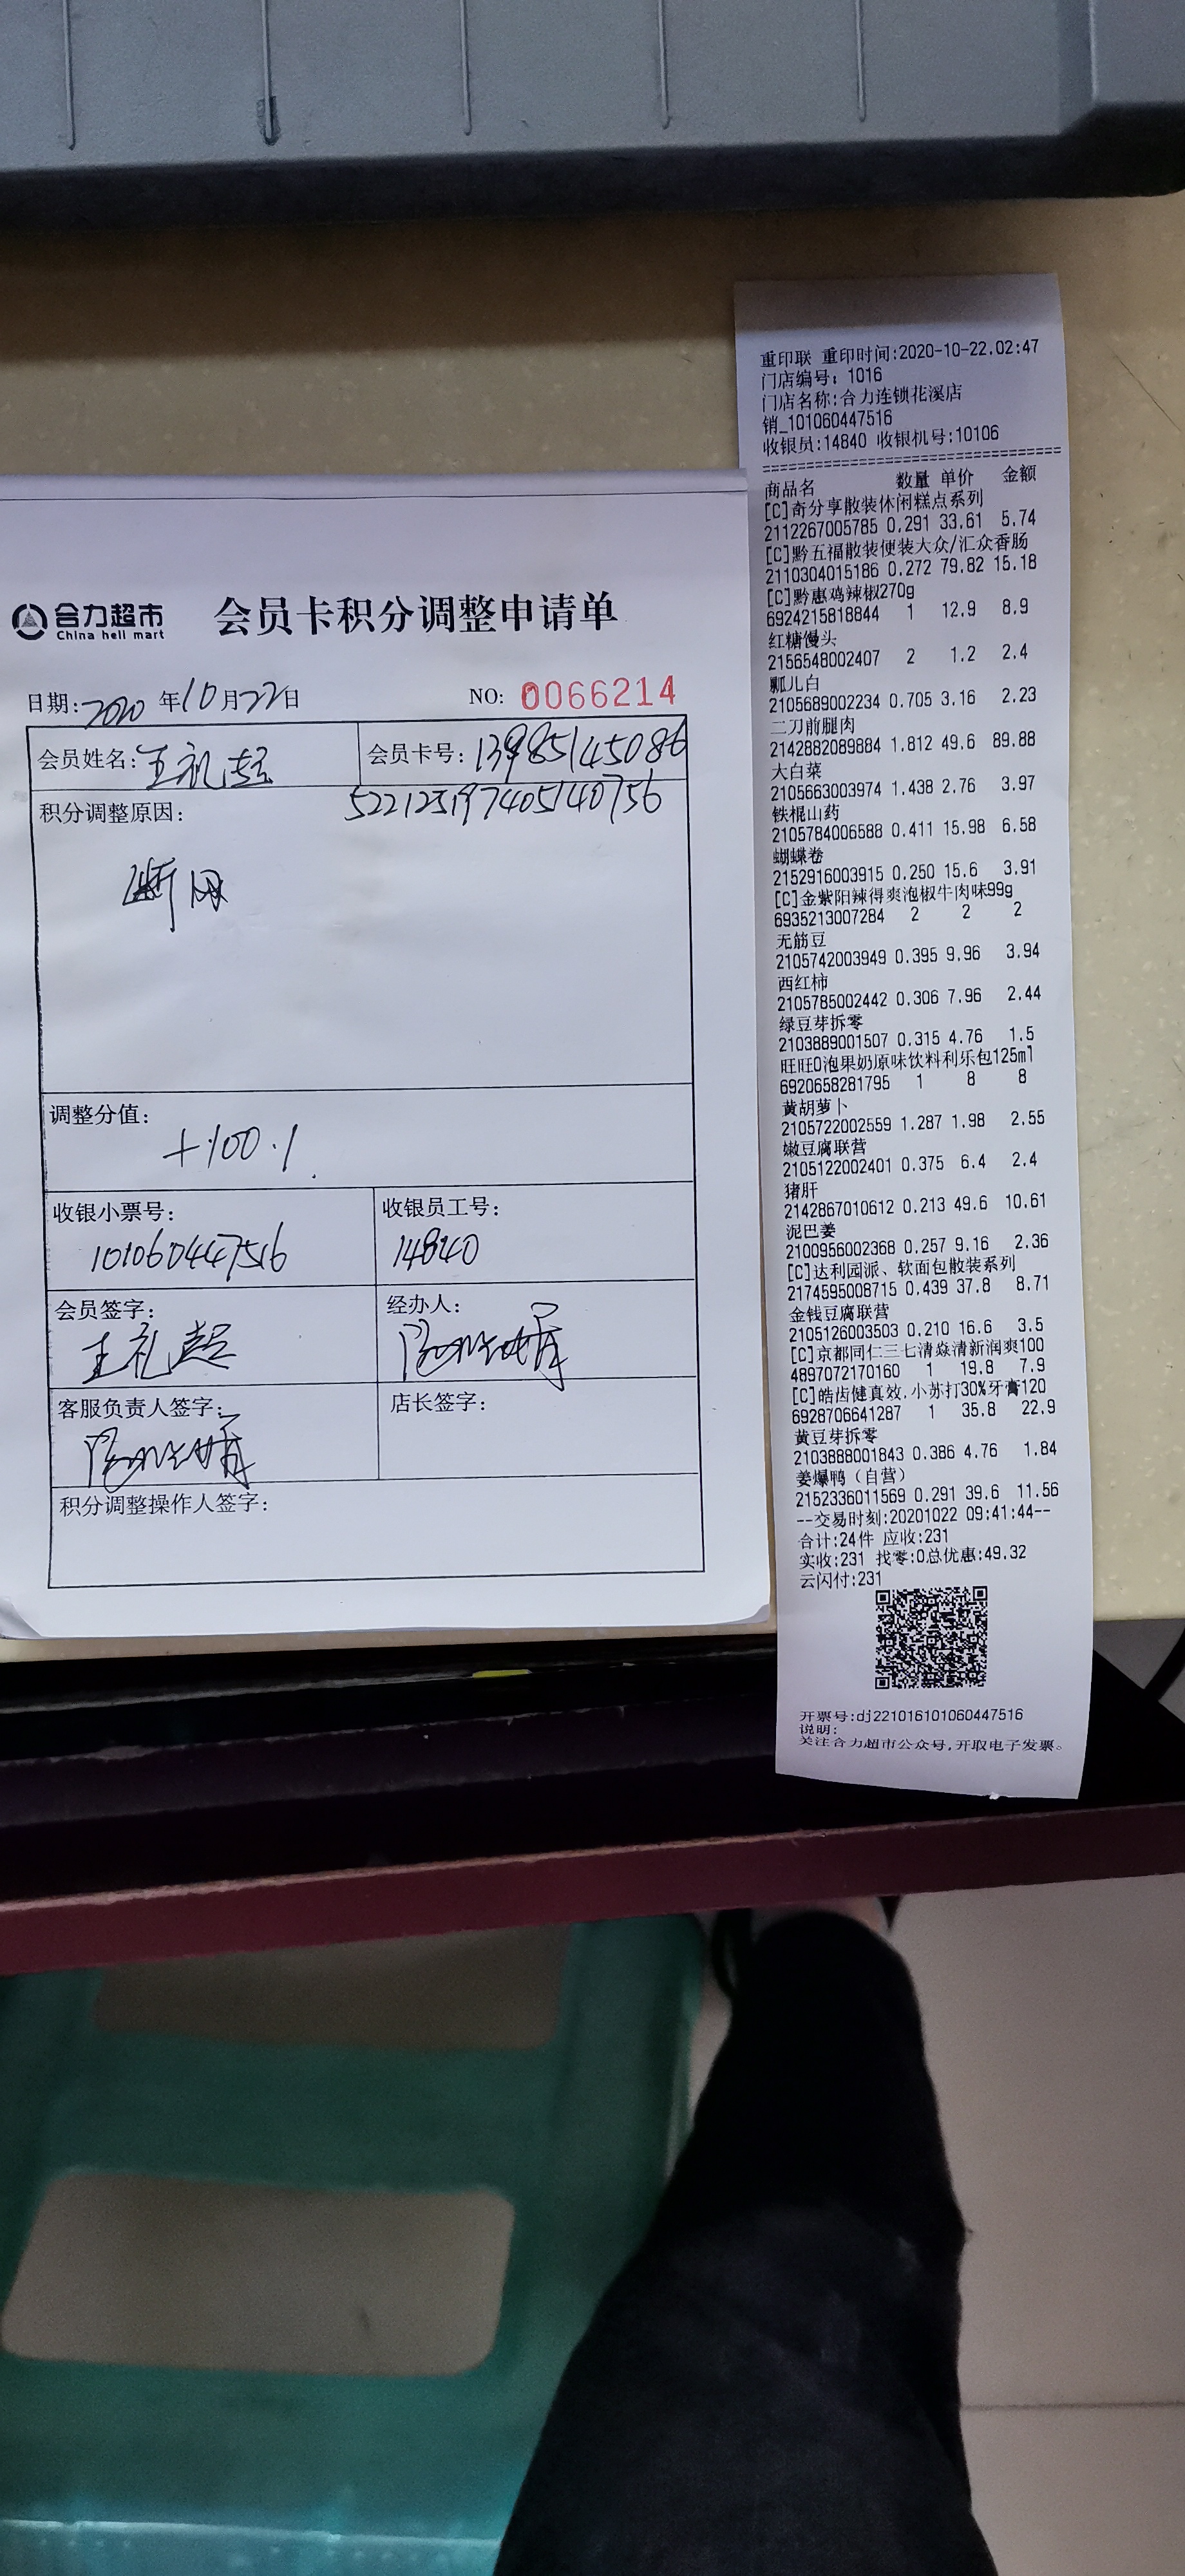 合力超市
China heli mart
会员卡积分调整申请单
日期:2020年10月22日 NO: 0066214
会员姓名:王礼超 会员卡号:13985145086
积分调整原因: 522125197405140756
断网
调整分值:
+100.1
收银小票号: 收银员工号:
101060447516 14840
会员签字: 经办人:
王礼超
客服负责人签字: 店长签字:
积分调整操作人签字:
重印联 重印时间:2020-10-22.02:47
门店编号: 1016
门店名称:合力连锁花溪店
销_101060447516
收银员:14840 收银机号:10106
商品名 数量 单价 金额
[C]奇分享散装休闲糕点系列
2112267005785 0.291 33.61 5.74
[C]黔五福散装便装大众/汇众香肠
2110304015186 0.272 79.82 15.18
[C]黔惠鸡辣椒270g
6924215818844 1 12.9 8.9
红糖馒头
2156548002407 2 1.2 2.4
瓢儿白
2105689002234 0.705 3.16 2.23
二刀前腿肉
2142882089884 1.812 49.6 89.88
大白菜
2105663003974 1.438 2.76 3.97
铁棍山药
2105784006588 0.411 15.98 6.58
蝴蝶卷
2152916003915 0.250 15.6 3.91
[C]金紫阳辣得爽泡椒牛肉味99g
6935213007284 2 2 2
无筋豆
2105742003949 0.395 9.96 3.94
西红柿
2105785002442 0.306 7.96 2.44
绿豆芽拆零
2103889001507 0.315 4.76 1.5
旺旺O泡果奶原味饮料利乐包125ml
6920658281795 1 8 8
黄胡萝卜
2105722002559 1.287 1.98 2.55
嫩豆腐联营
2105122002401 0.375 6.4 2.4
猪肝
2142867010612 0.213 49.6 10.61
泥巴姜
2100956002368 0.257 9.16 2.36
[C]达利园派、软面包散装系列
2174595008715 0.439 37.8 8.71
金钱豆腐联营
2105126003503 0.210 16.6 3.5
[C]京都同仁三七清焱清新润爽100
4897072170160 1 19.8 7.9
[C]皓齿健真效.小苏打30%牙膏120
6928706641287 1 35.8 22.9
黄豆芽拆零
2103888001843 0.386 4.76 1.84
姜爆鸭（自营）
2152336011569 0.291 39.6 11.56
--交易时刻:20201022 09:41:44--
合计:24件 应收:231
实收:231 找零:0总优惠:49.32
云闪付:231
开票号:dj221016101060447516
说明:
关注合力超市公众号,开取电子发票。